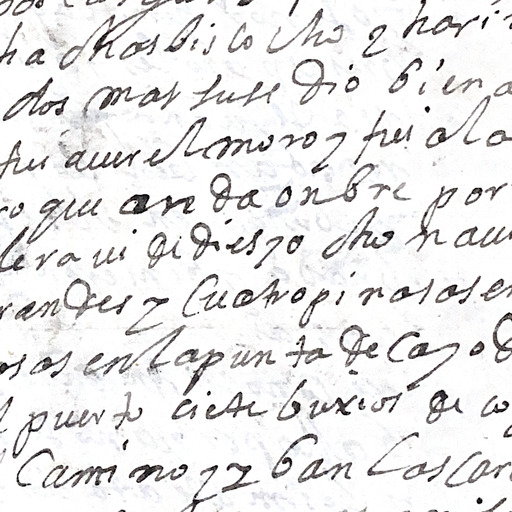 ha otras bis co cho y hari
dos mas fuse dio bien a
fui a uer el moro y fui a la
ro que anda onbre por
lera ui de dies y o cho naui
randes y Cuatro pinasas en
osas en la punta de Cayo d
l puerto ciete buxios de co
Camino y y ban las car